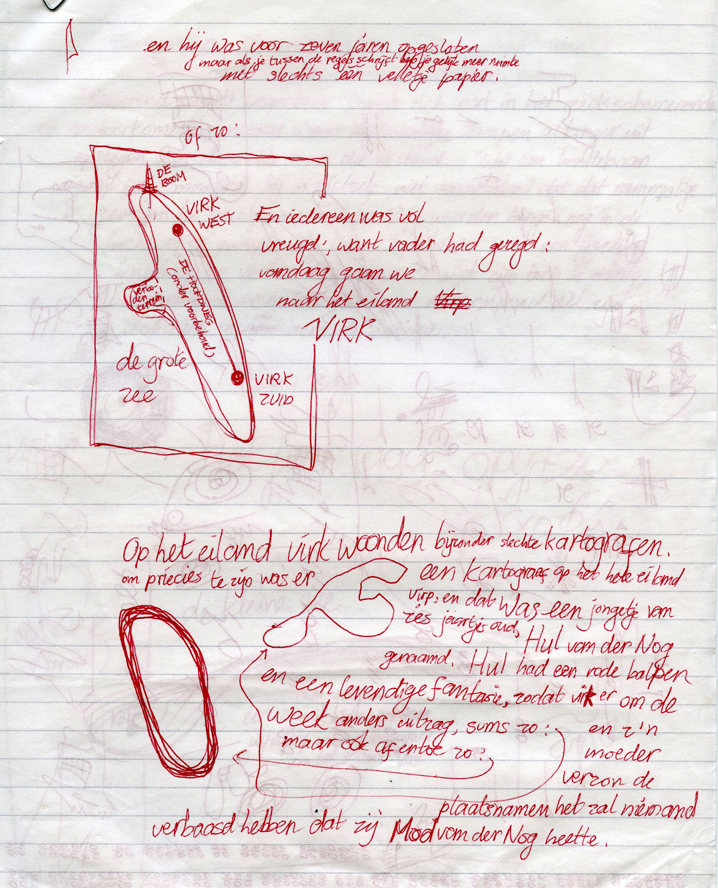 en hij was voor zeven jaren opgesloten
maar als je tussen de regels schrijft heb je gelijk meer ruimte
met slechts één velletje papier.
of zo:
DE
BOOM
VIRK
WEST
DE HOOFDWEG
(onder voorbehoud)
de grote
zee
VIRK
ZUID
En iedereen was vol
vreugd', want vader had gezegd:
vandaag gaan we
naar het eiland Virp
VIRK
Op het eiland virk woonden bijzonder slechte kartografen.
om precies te zijn was er
een kartograaf op het hele eiland
virp, en dat was een jongetje van
zes jaartjes oud, Hul van der Nog
genaamd. Hul had een rode balpen
en een levendige fantasie, zodat virk er om de
week anders uitzag, soms zo:
maar ook af en toe zo:
en z'n
moeder
verzon de
plaatsnamen het zal niemand
verbaasd hebben dat zij Mod van der Nog heette.